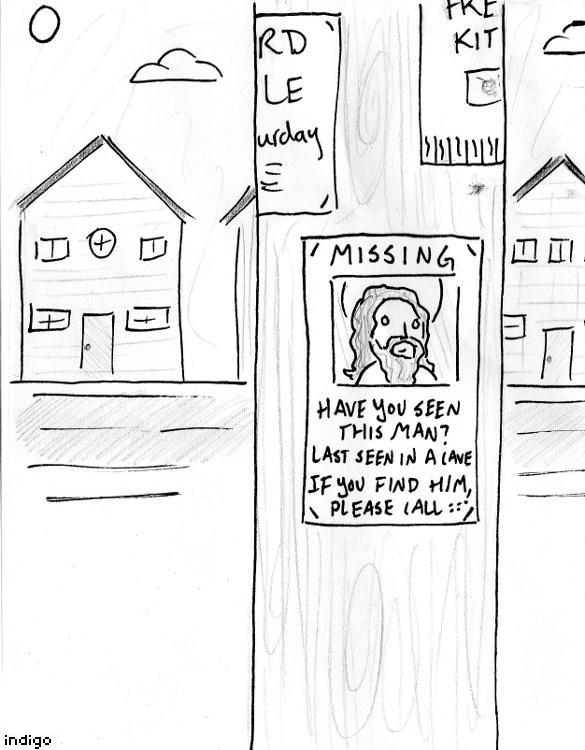 RD
LE
urday
FRE
KIT
MISSING
HAVE YOU SEEN
THIS MAN?
LAST SEEN IN A CAVE
IF YOU FIND HIM,
PLEASE CALL :::
indigo